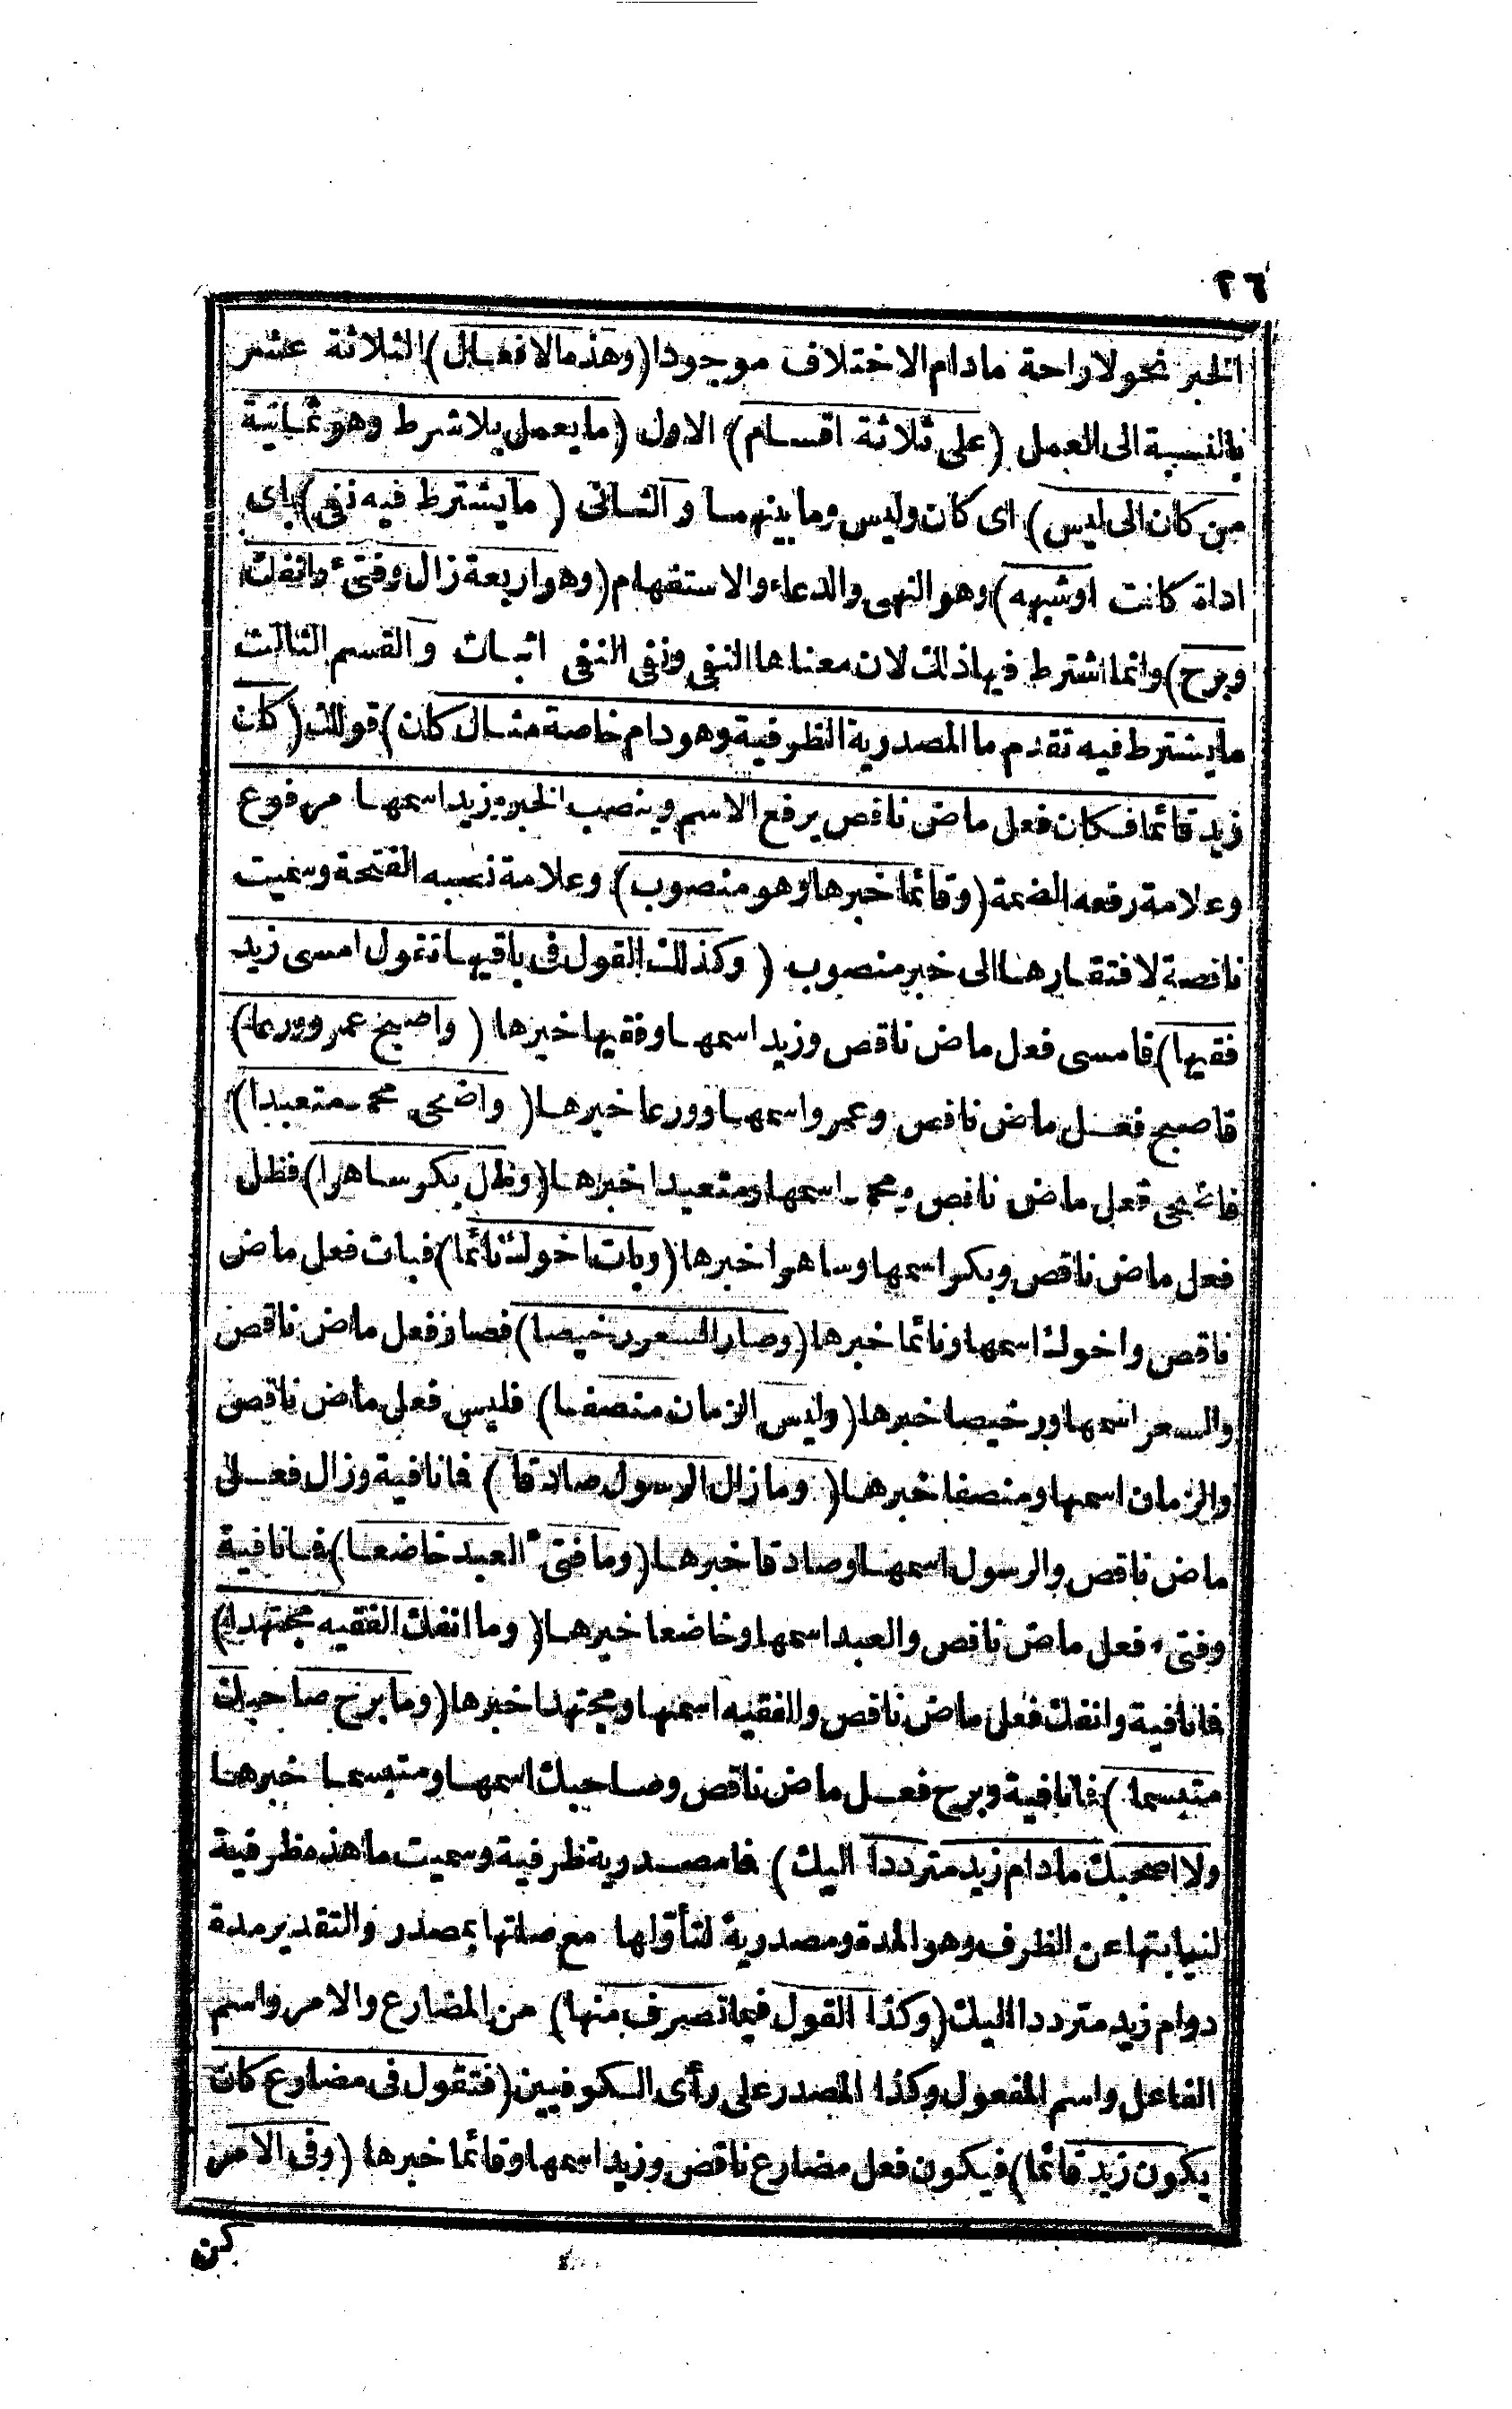 ٢٦
الخبر نحو لا راحة مادام الاختلاف موجودا (وهذه الافعال) الثلاثة عشر
بالنسبة الى العمل (على ثلاثة اقسام) الاول (مايعمل بلا شرط وهو ثمانية
من كان الى ليس) اى كان وليس وما بينهما والثانى (مايشترط فيه نفى) باى
اداة كانت اوشبهه) وهو النهى والدعاء والاستفهام (وهو اربعة زال وفتئ وانفك
وبرح) وانما اشترط فيها ذلك لان معناها النفى ونفى النفى اثبات والقسم الثالث
مايشترط فيه تقدم ما المصدرية الظرفية وهو دام خاصة مثال كان) قولك (كان
زيد قائما فكان فعل ماض ناقص يرفع الاسم وينصب الخبر وزيد اسمها مرفوع
وعلامة رفعه الضمة (وقائما خبرها وهو منصوب) وعلامة نصبه الفتحة وسميت
ناقصة لافتقارها الى خبر منصوب (وكذلك القول فى باقيها تقول امسى زيد
فقيها) فامسى فعل ماض ناقص وزيد اسمها وفقيها خبرها (واصبح عمرو ورعا)
فاصبح فعل ماض ناقص وعمرو اسمها وورعا خبرها (واضحى محمد متعبدا)
فاضحى فعل ماض ناقص ومحمد اسمها ومتعبدا خبرها (وظل بكر ساهرا) فظل
فعل ماض ناقص وبكر اسمها وساهرا خبرها (وبات اخوك نائما) فبات فعل ماض
ناقص واخوك اسمها ونائما خبرها (وصار السعر رخيصا) فصار فعل ماض ناقص
والسعر اسمها ورخيصا خبرها (وليس الزمان منصفا) فليس فعل ماض ناقص
والزمان اسمها ومنصفا خبرها (وما زال الرسول صادقا) فما نافية وزال فعل
ماض ناقص والرسول اسمها وصادقا خبرها (وما فتئ العبد خاضعا) فما نافية
وفتئ فعل ماض ناقص والعبد اسمها وخاضعا خبرها (وما انفك الفقيه مجتهدا)
فما نافية وانفك فعل ماض ناقص والفقيه اسمها ومجتهدا خبرها (وما برح صاحبك
متبسما) فما نافية وبرح فعل ماض ناقص وصاحبك اسمها ومتبسما خبرها
ولا اصحبك مادام زيد مترددا اليك) فما مصدرية ظرفية وسميت ما هذه ظرفية
لنيابتها عن الظرف وهو المدة ومصدرية لتأولها مع صلتها بمصدر والتقدير مدة
دوام زيد مترددا اليك (وكذا القول فيما تصرف منها) من المضارع والامر واسم
الفاعل واسم المفعول وكذا المصدر على رأى الكوفيين (فتقول فى مضارع كان
يكون زيد قائما) فيكون فعل مضارع ناقص وزيد اسمها وقائما خبرها (وفى الامر
كن